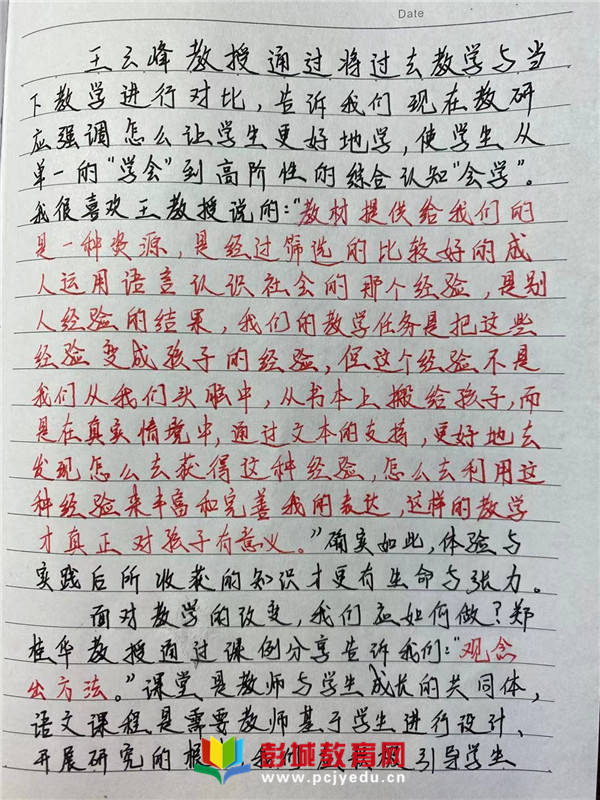 Date
王云峰教授通过将过去教学与当
下教学进行对比，告诉我们现在教研
应强调怎么让学生更好地学，使学生从
单一的“学会”到高阶性的综合认知“会学”。
我很喜欢王教授说的：“教材提供给我们的
是一种资源，是经过筛选的比较好的成
人运用语言认识社会的那个经验，是别
人经验的结果，我们的教学任务是把这些
经验变成孩子的经验，但这个经验不是
我们从我们头脑中，从书本上搬给孩子，而
是在真实情境中，通过文本的支持，更好地去
发现怎么去获得这种经验，怎么去利用这
种经验来丰富和完善我的表达，这样的教学
才真正对孩子有意义。”确实如此，体验与
实践后所收获的知识才更有生命与张力。
面对教学的改变，我们应如何做？郑
桂华教授通过课例分享告诉我们：“观念
出方法。”课堂是教师与学生成长的共同体，
语文课程是需要教师基于学生进行设计、
开展研究的，我们应引导学生
彭城教育网
www.pcjyedu.cn